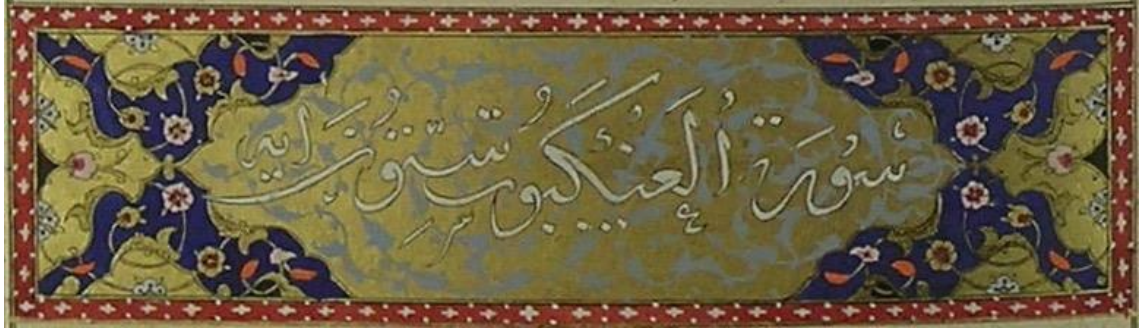 سُورَةُ الْعَنْكَبُوتِ سِتُّونَ اٰيَة